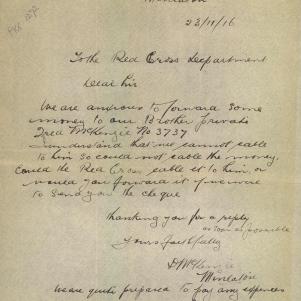 Minlaton
23/11/16
To the Red Cross Department
Dear Sir
We are anxious to forward some
money to our Brother Private
Fred McKenzie No 3737
understand that we cannot cable
to him so could not cable the money,
could the Red Cross cable it to him, or
would you forward it if we were
to send you the cheque
Thanking you for a reply
as soon as possible
Yours faithfully
D McKenzie
Minlaton
We are quite prepared to pay any expenses